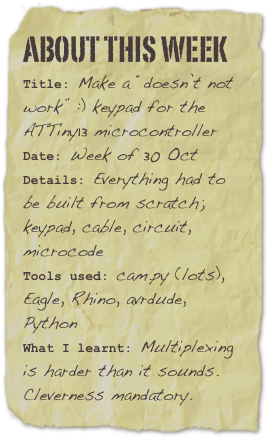 ABOUT THIS WEEK
Title: Make a "doesn't not
work" :) keypad for the
ATTiny13 microcontroller
Date: Week of 30 Oct
Details: Everything had to
be built from scratch;
keypad, cable, circuit,
microcode
Tools used: cam.py (lots),
Eagle, Rhino, avrdude,
Python
What I learnt: Multiplexing
is harder than it sounds.
Cleverness mandatory.